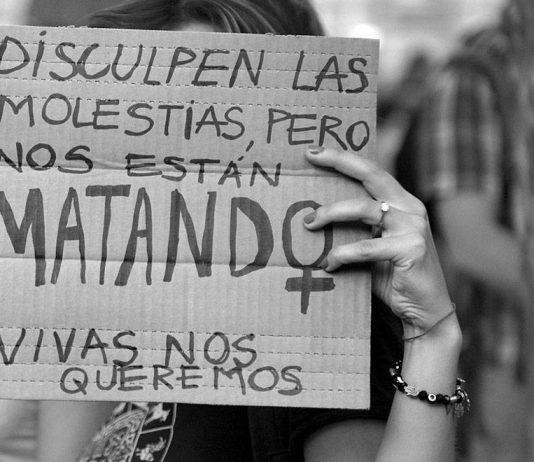 DISCULPEN LAS
MOLESTIAS, PERO
NOS ESTÁN
MATANDO
VIVAS NOS
QUEREMOS